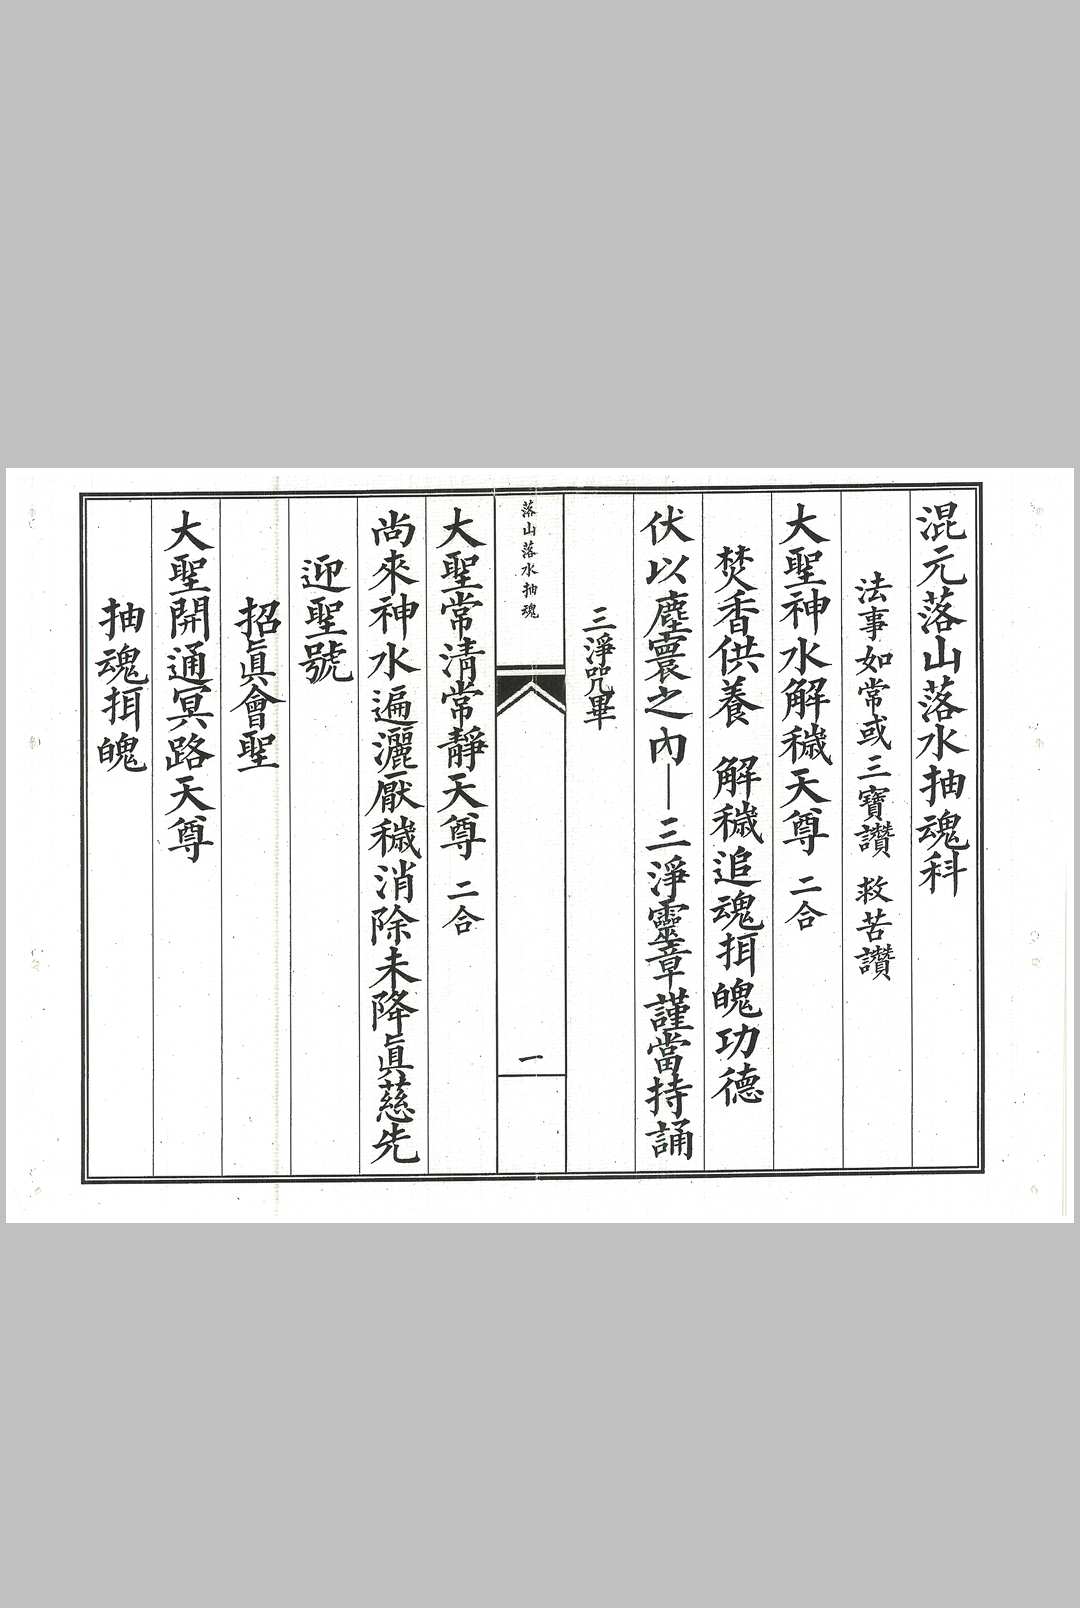 混元落山落水抽魂科
法事如常或三寶讚 救苦讚
大聖神水解穢天尊 二合
焚香供養 解穢追魂抇魄功德
伏以塵寰之內—三淨靈章謹當持誦
三淨咒畢
落山落水抽魂
一
大聖常清常靜天尊 二合
尚來神水遍灑厭穢消除未降眞慈先
迎聖號
招眞會聖
大聖開通冥路天尊
抽魂抇魄